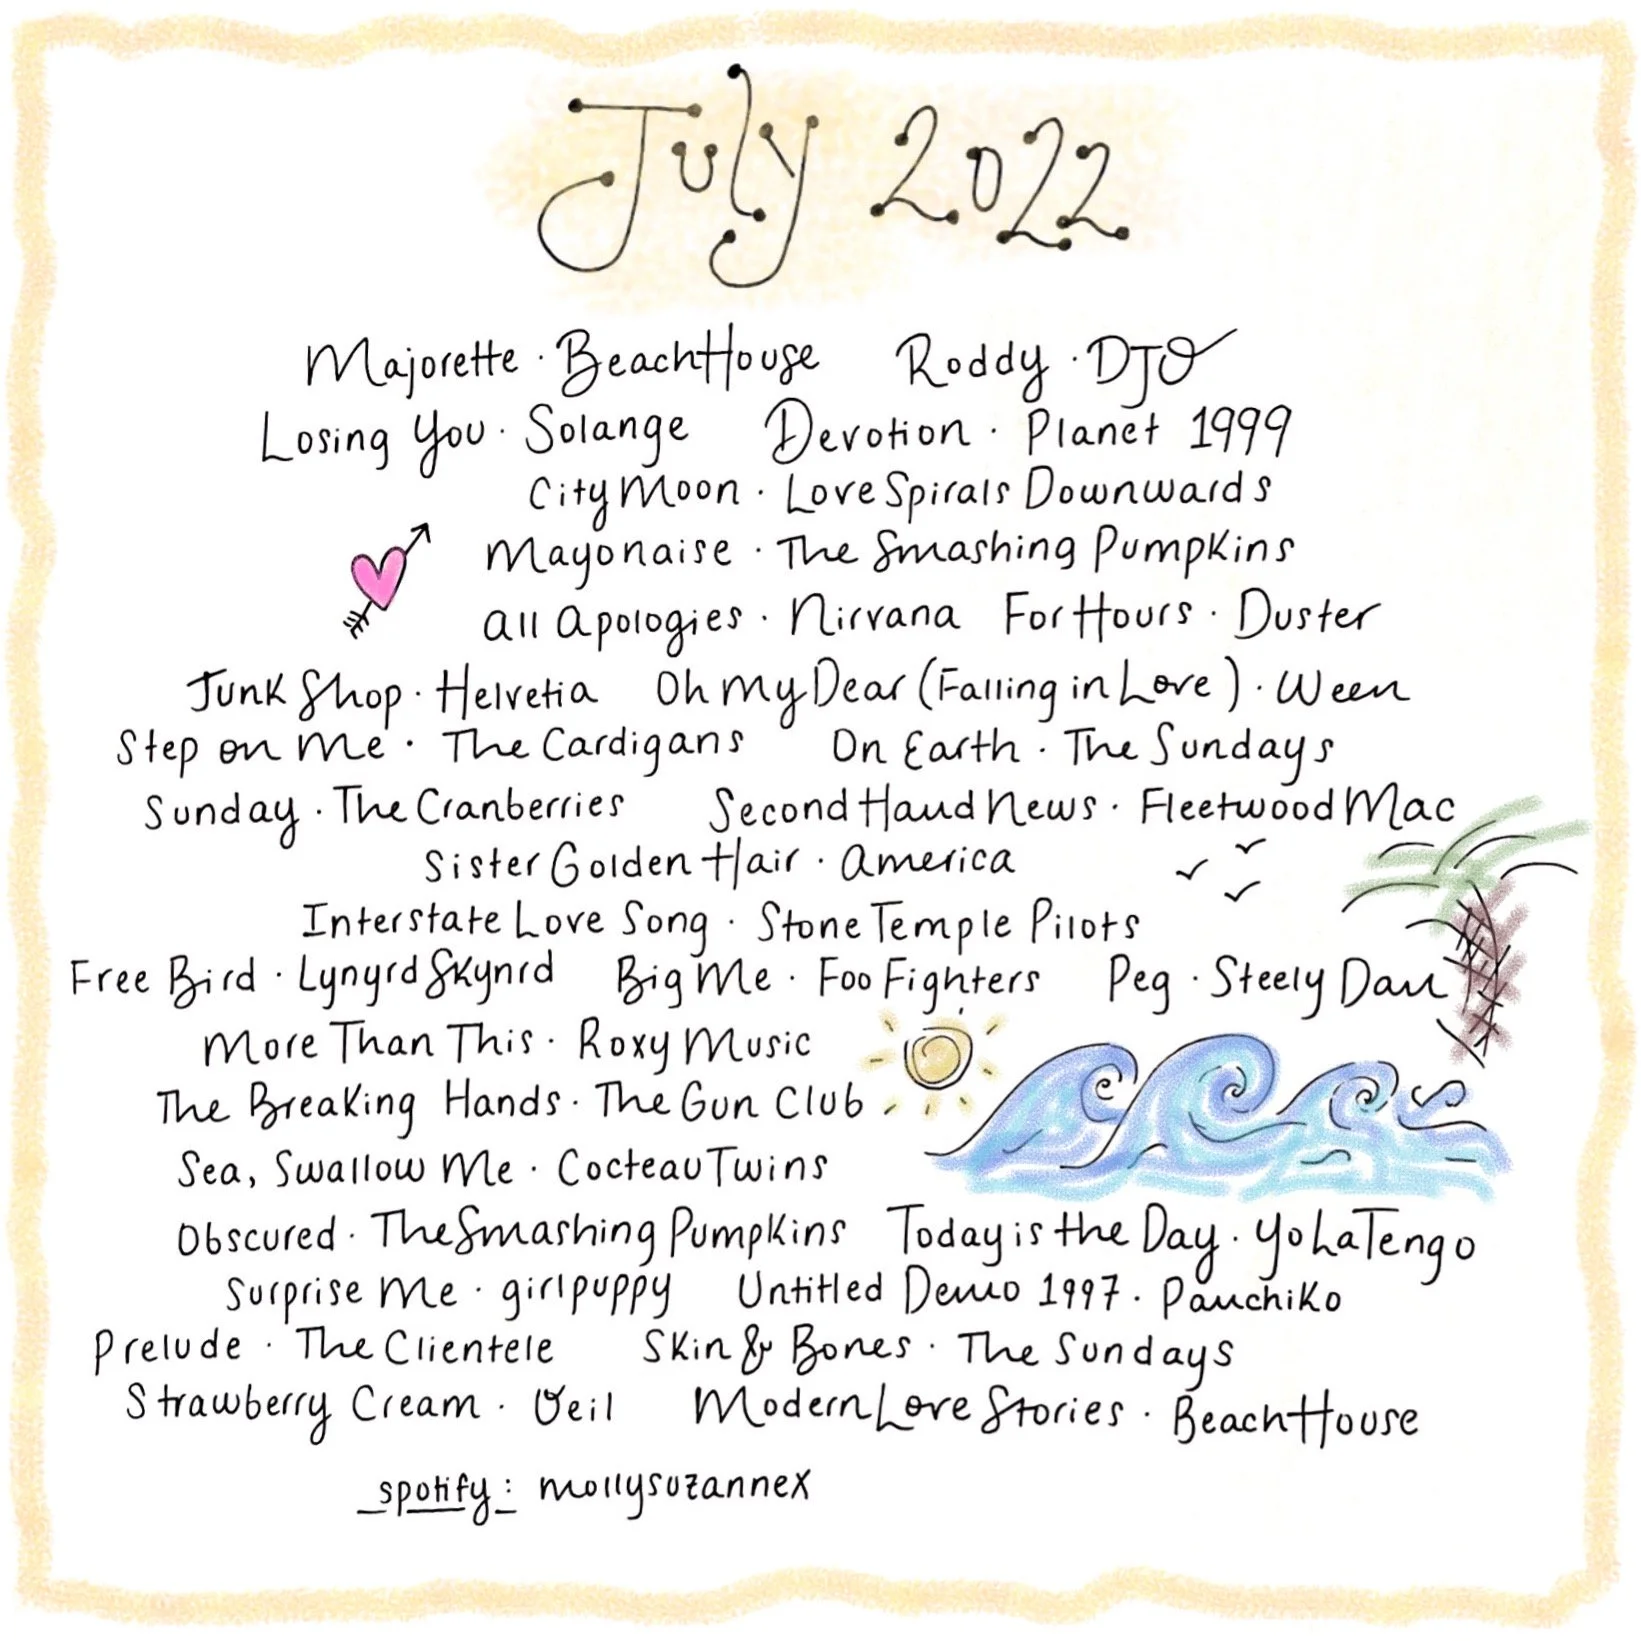 July 2022
Majorette · Beach House Roddy · DJO
Losing You · Solange Devotion · Planet 1999
City Moon · Love Spirals Downwards
Mayonaise · The Smashing Pumpkins
All Apologies · Nirvana For Hours · Duster
Junk Shop · Helvetia Oh My Dear (Falling in Love) · Ween
Step on Me · The Cardigans On Earth · The Sundays
Sunday · The Cranberries Second Hand News · Fleetwood Mac
Sister Golden Hair · America
Interstate Love Song · Stone Temple Pilots
Free Bird · Lynyrd Skynrd Big Me · Foo Fighters Peg · Steely Dan
More Than This · Roxy Music
The Breaking Hands · The Gun Club
Sea, Swallow Me · Cocteau Twins
Obscured · The Smashing Pumpkins Today is the Day · Yo La Tengo
Surprise Me · girlpuppy Untitled Demo 1997 · Panchiko
Prelude · The Clientele Skin & Bones · The Sundays
Strawberry Cream · Veil Modern Love Stories · Beach House
spotify: mollysuzannex